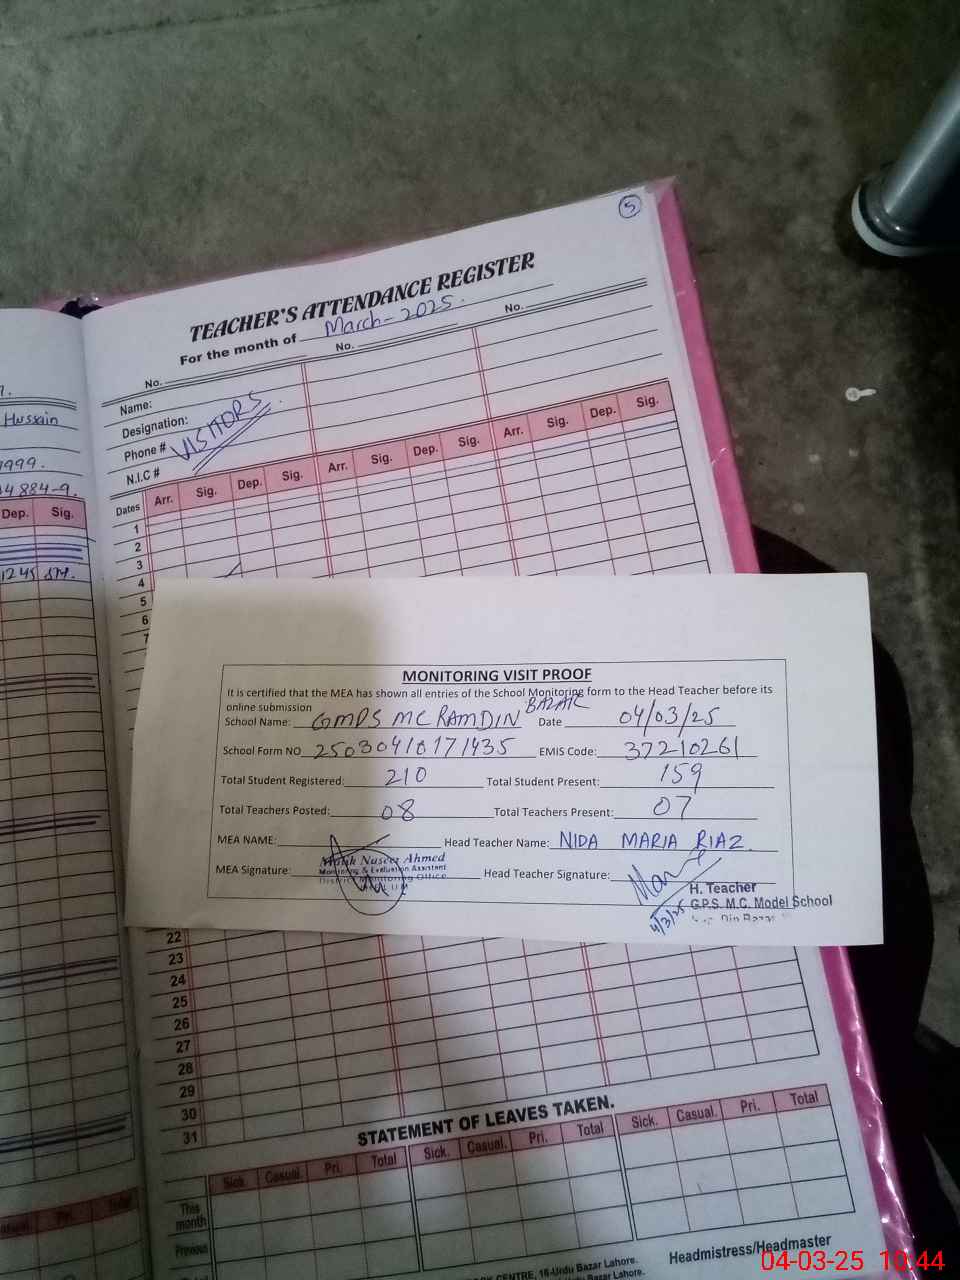 5
TEACHER'S ATTENDANCE REGISTER
For the month of March-2025.
No. No. No.
Name:
Designation:
Phone # VISITORS.
N.I.C #
Dates Arr. Sig. Dep. Sig. Arr. Sig. Dep. Sig. Arr. Sig. Dep. Sig.
1
2
3
4
5
6
7
Hussain
999.
4884-9.
Dep. Sig.
1245 SM.
MONITORING VISIT PROOF
It is certified that the MEA has shown all entries of the School Monitoring form to the Head Teacher before its
online submission
School Name: GMPS MC RAMDIN BAZAR Date 04/03/25
School Form NO 25030410171435 EMIS Code: 37210261
Total Student Registered: 210 Total Student Present: 159
Total Teachers Posted: 08 Total Teachers Present: 07
MEA NAME: Head Teacher Name: NIDA MARIA RIAZ.
Malik Naseer Ahmed
Monitoring & Evaluation Assistant
District Monitoring Office
MEA Signature: Head Teacher Signature:
4/3/25
H. Teacher
G.P.S. M.C. Model School
Din Bazar
22
23
24
25
26
27
28
29
30
31
STATEMENT OF LEAVES TAKEN.
Sick. Casual. Pri. Total Sick. Casual. Pri. Total Sick. Casual. Pri. Total
This
month
Previous
CENTRE, 16-Urdu Bazar Lahore.
Urdu Bazar Lahore.
Headmistress/Headmaster
Pri. Total
04-03-25 10.44